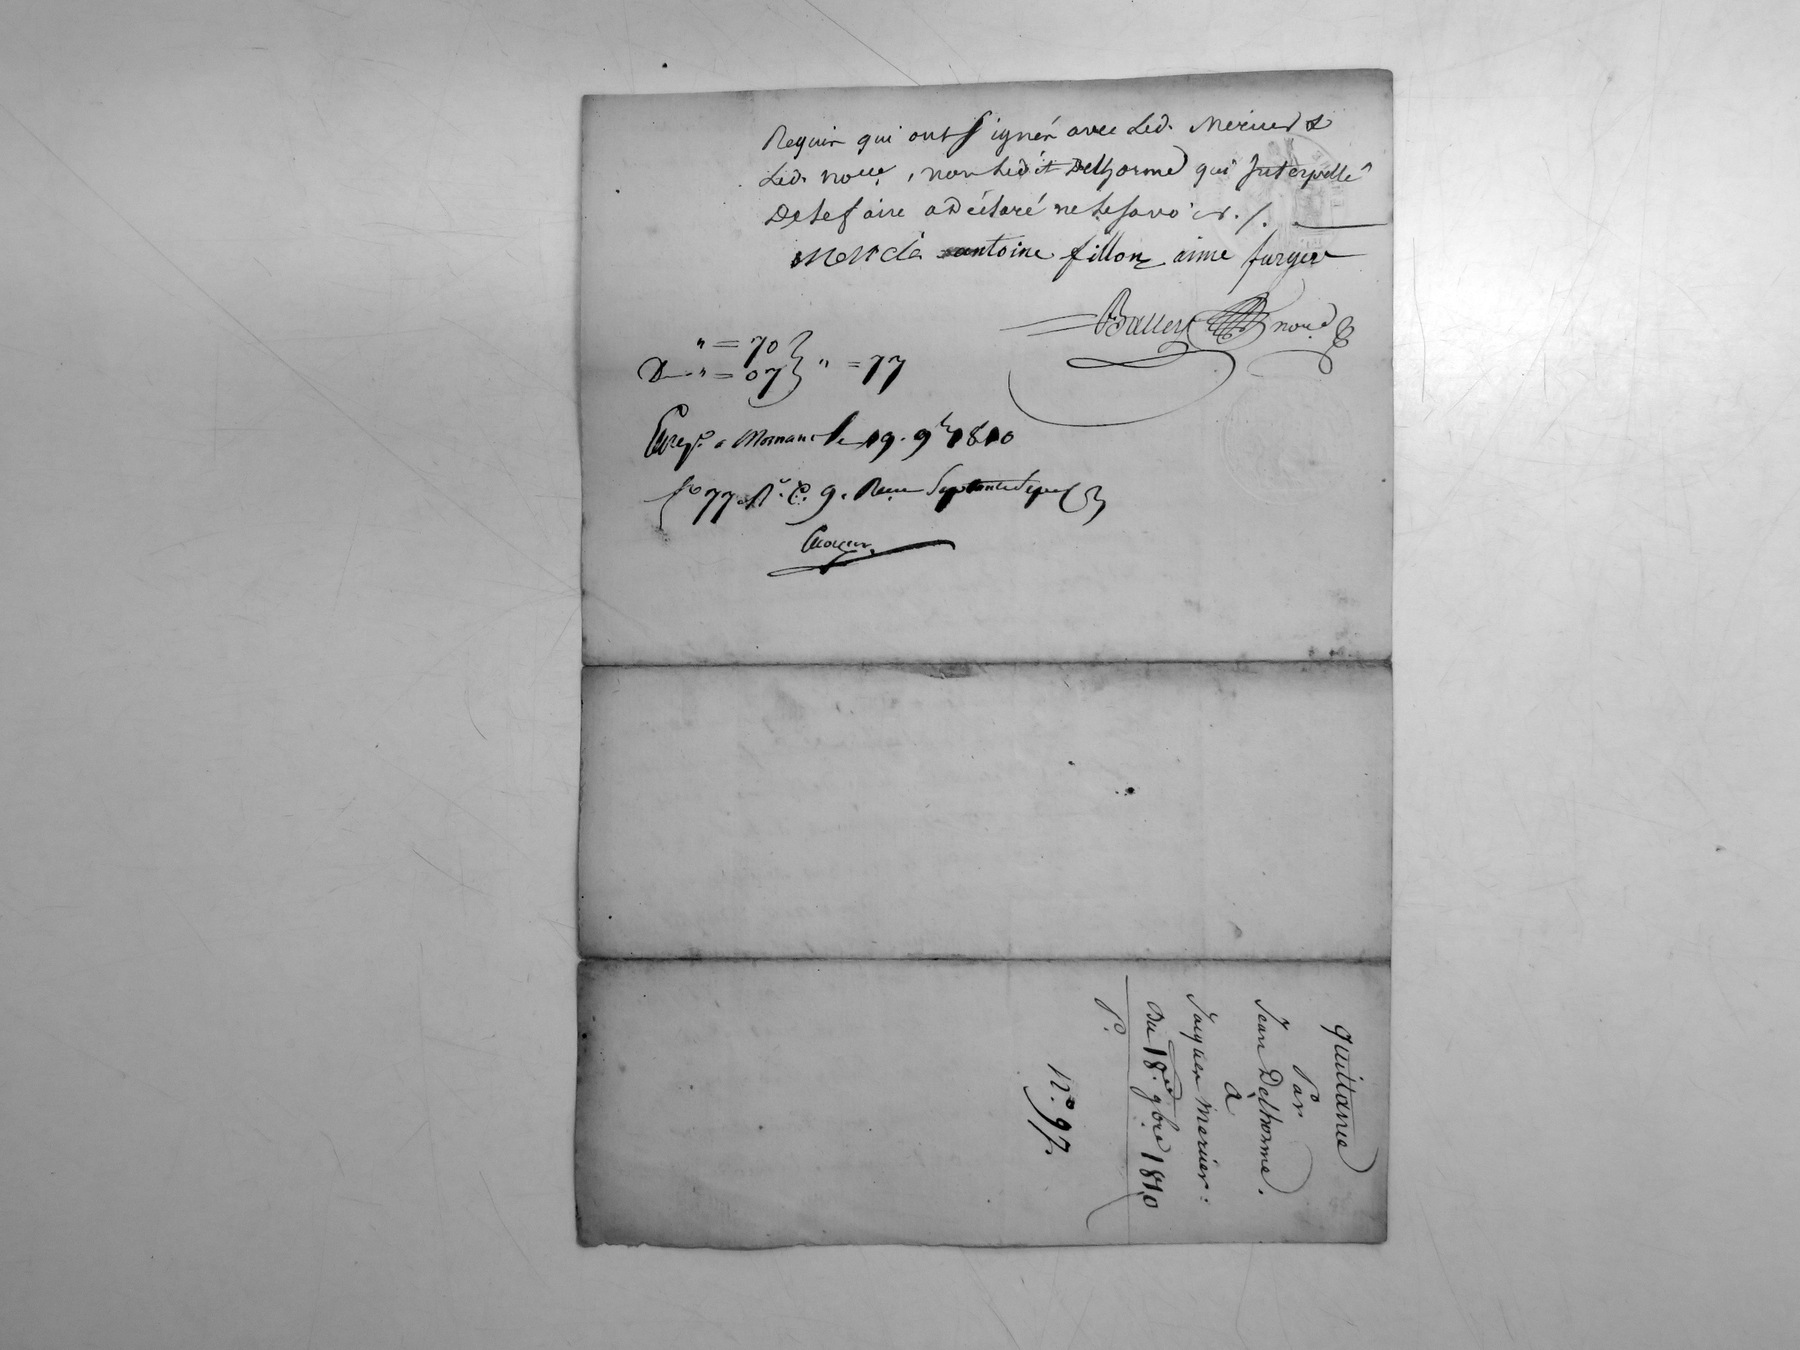 Requis qui ont signés avec Led. Mercier &
Led. nore, non Ledit Delhorme qui Interpellé
De le faire a Déclaré ne le Savoir ./.
antoine fillon aimé furgere
nore
" = 70
D — " = 07 } " = 77
Enregé. a Mornant le 19. 9bre 1810
fo 77 Ro. C. 9. Reçu Septante Sept c
quittance
Par
Jean Delhorme.
à
Jacques Mercier :
Du 18. 9bre 1810
P.
No. 97.